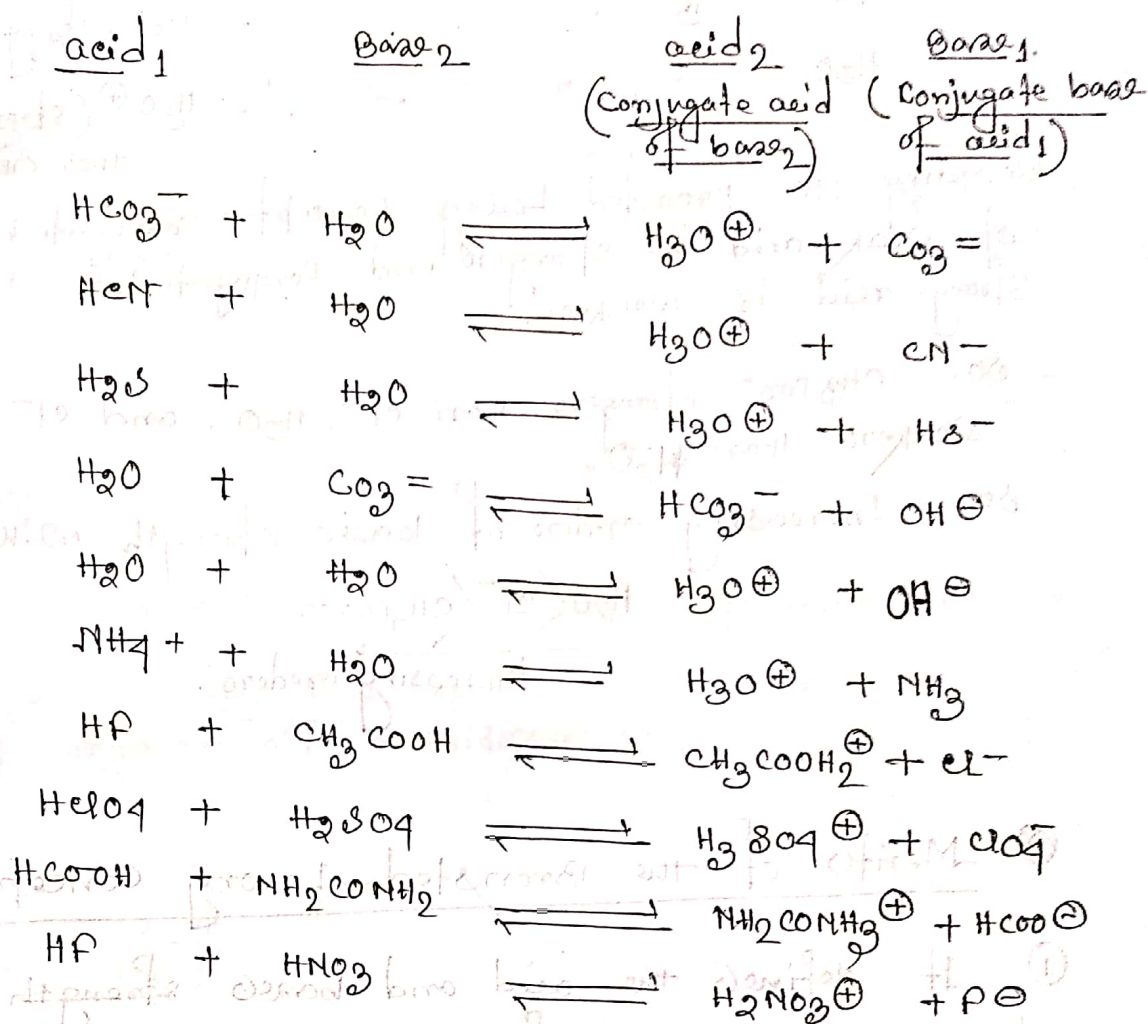 acid1 Base2 acid2 Base1.
(Conjugate acid (Conjugate base
of base2) of acid1)
HCO3⁻ + H2O ⇌ H3O⊕ + CO3=
HCN + H2O ⇌ H3O⊕ + CN⁻
H2S + H2O ⇌ H3O⊕ + HS⁻
H2O + CO3= ⇌ HCO3⁻ + OH⊖
H2O + H2O ⇌ H3O⊕ + OH⊖
NH4+ + H2O ⇌ H3O⊕ + NH3
HF + CH3COOH ⇌ CH3COOH2⊕ + Cl⁻
HClO4 + H2SO4 ⇌ H3SO4⊕ + ClO4⁻
HCOOH + NH2CONH2 ⇌ NH2CONH3⊕ + HCOO⊖
HF + HNO3 ⇌ H2NO3⊕ + F⊖